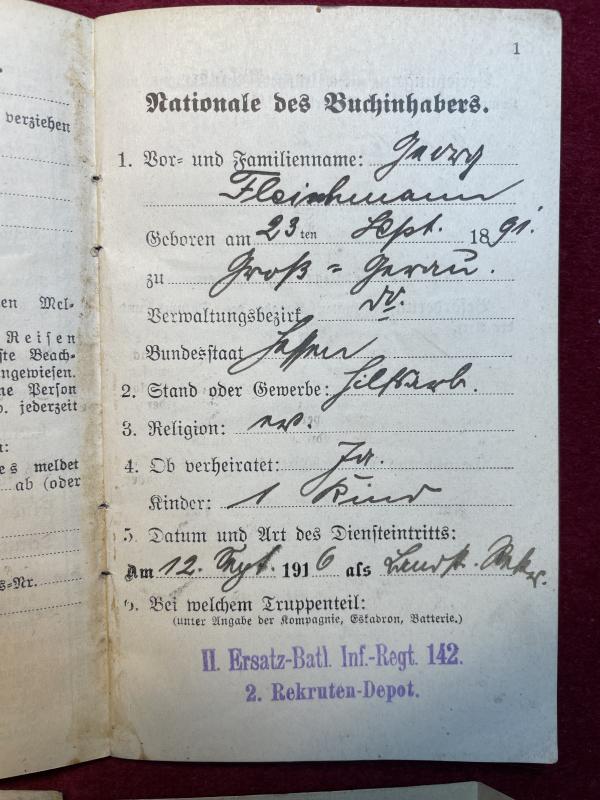 verziehen
en Mel-
Reisen
ste Beach-
ngewiesen.
ne Person
o. jederzeit
n:
es meldet
ab (oder
s-Nr.
1
Nationale des Buchinhabers.
1. Vor- und Familienname: Georg
Fleischmann
Geboren am 23ten Sept. 1891.
zu Groß=Gerau.
Verwaltungsbezirk do.
Bundesstaat Hessen
2. Stand oder Gewerbe: Hilfsarb.
3. Religion: ev.
4. Ob verheiratet: Ja.
Kinder: 1 Kind
5. Datum und Art des Diensteintritts:
Am 12. Sept. 1916 als Landst. Rekr.
6. Bei welchem Truppenteil:
(unter Angabe der Kompagnie, Eskadron, Batterie.)
II. Ersatz-Batl. Inf.-Regt. 142.
2. Rekruten-Depot.